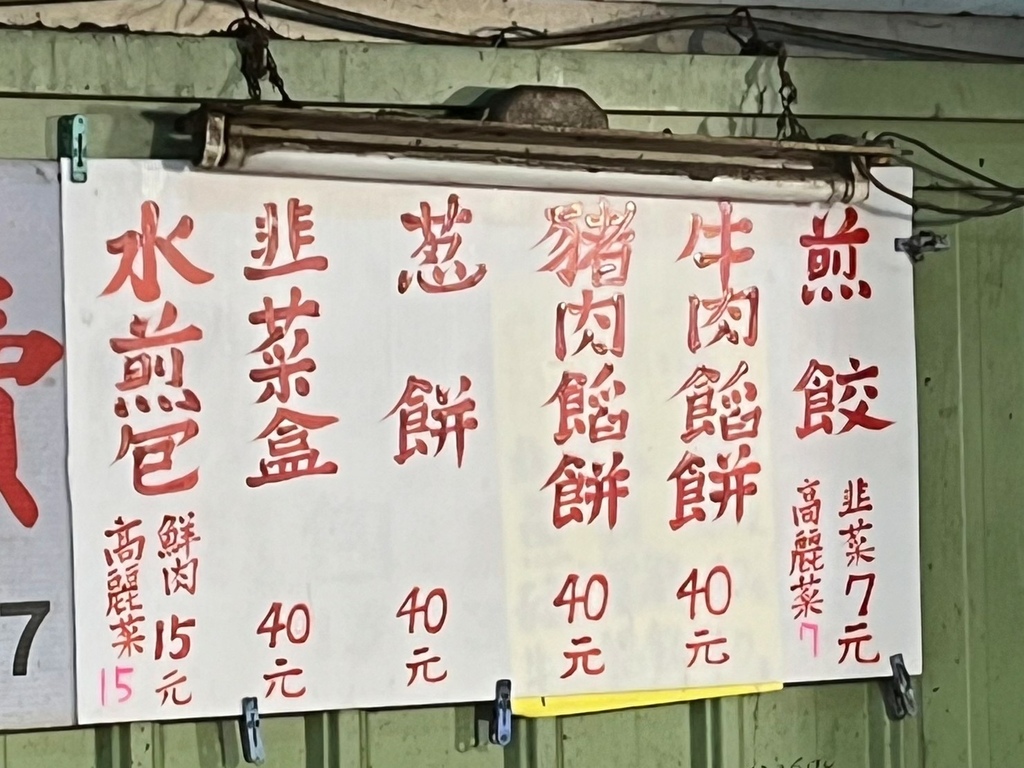 煎餃
韭菜7元
高麗菜7
牛肉餡餅
40元
豬肉餡餅
40元
葱餅
40元
韭菜盒
40元
水煎包
鮮肉15元
高麗菜15
7